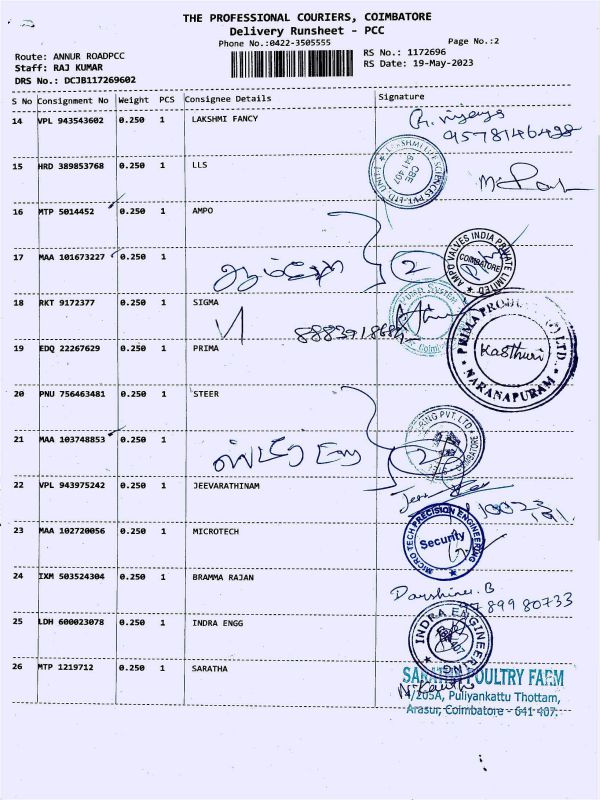 THE PROFESSIONAL COURIERS, COIMBATORE
Delivery Runsheet - PCC
Phone No.:0422-3505555
Page No.:2
Route: ANNUR ROADPCC
RS No.: 1172696
Staff: RAJ KUMAR
RS Date: 19-May-2023
DRS No.: DCJB117269602
S No Consignment No Weight PCS Consignee Details Signature
14 VPL 943543602 0.250 1 LAKSHMI FANCY
9578146498
15 HRD 389853768 0.250 1 LLS
LAKSHMI LIFE SCIENCES PVT. LTD. UNIT-I
CBE
641 407
16 MTP 5014452 0.250 1 AMPO
17 MAA 101673227 0.250 1
2
AMPO VALVES INDIA PRIVATE LIMITED
COIMBATORE
18 RKT 9172377 0.250 1 SIGMA
19 EDQ 22267629 0.250 1 PRIMA
PRIMA PRODUCTS (P) LTD.
Kasthuri
NARANAPURAM
20 PNU 756463481 0.250 1 STEER
21 MAA 103748853 0.250 1
2
22 VPL 943975242 0.250 1 JEEVARATHINAM
23 MAA 102720056 0.250 1 MICROTECH
MICRO TECH PRECISION ENGINEERING
Security
24 IXM 503524304 0.250 1 BRAMMA RAJAN
Darshinee. B
9789980733
25 LDH 600023078 0.250 1 INDRA ENGG
INDRA ENGINEERING
26 MTP 1219712 0.250 1 SARATHA
SARATHA POULTRY FARM
4/205A, Puliyankattu Thottam,
Arasur, Coimbatore - 641 407.